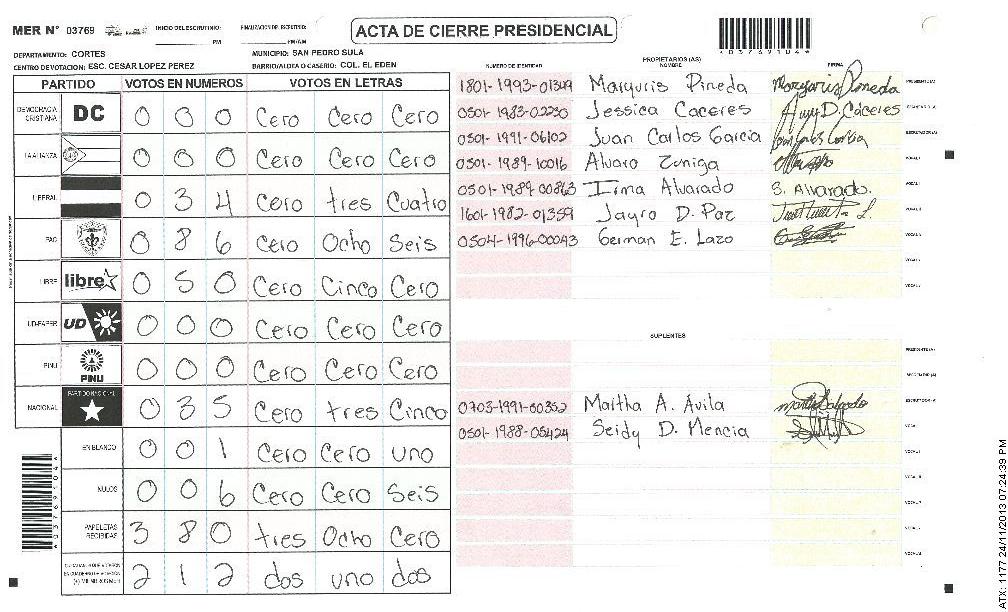 MER N° 03769 INICIO DE ESCRUTINIO: FINALIZACION DEL ESCRUTINIO:
PM PM/AM
ACTA DE CIERRE PRESIDENCIAL
*03769104*
DEPARTAMENTO: CORTES MUNICIPIO: SAN PEDRO SULA
CENTRO DE VOTACION: ESC. CESAR LOPEZ PEREZ BARRIO/ALDEA O CASERIO: COL. EL EDEN
PARTIDO VOTOS EN NUMEROS VOTOS EN LETRAS
DEMOCRACIA CRISTIANA DC 0 0 0 Cero Cero Cero
LA ALIANZA 0 0 0 Cero Cero Cero
LIBERAL 0 3 4 Cero tres Cuatro
PAC 0 8 6 Cero Ocho Seis
LIBRE libre 0 5 0 Cero Cinco Cero
UD-FAPER UD 0 0 0 Cero Cero Cero
PINU PINU 0 0 0 Cero Cero Cero
NACIONAL PARTIDO NACIONAL 0 3 5 Cero tres Cinco
EN BLANCO 0 0 1 Cero Cero uno
NULOS 0 0 6 Cero Cero Seis
PAPELETAS RECIBIDAS 3 8 0 tres Ocho Cero
2 1 2 dos uno dos
*03769104*
PROPIETARIOS (AS)
NUMERO DE IDENTIDAD NOMBRE FIRMA
1801-1993-01349 Margoris Pineda Margoris Pineda PRESIDENTE (A)
0501-1983-02230 Jessica Caceres D. Caceres SECRETARIO (A)
0501-1991-06102 Juan Carlos Garcia ESCRUTADOR (A)
0501-1989-10016 Alvaro Zuniga VOCAL I
0501-1989-00863 Irma Alvarado S. Alvarado. VOCAL II
1601-1982-01359 Jayro D. Paz
0504-1996-00043 German E. Lazo
SUPLENTES
PRESIDENTE (A)
SECRETARIO (A)
0703-1991-00352 Martha A. Avila ESCRUTADOR (A)
0501-1988-05424 Seidy D. Mencia VOCAL I
ATX: 1177 24/11/2013 07:24:39 PM